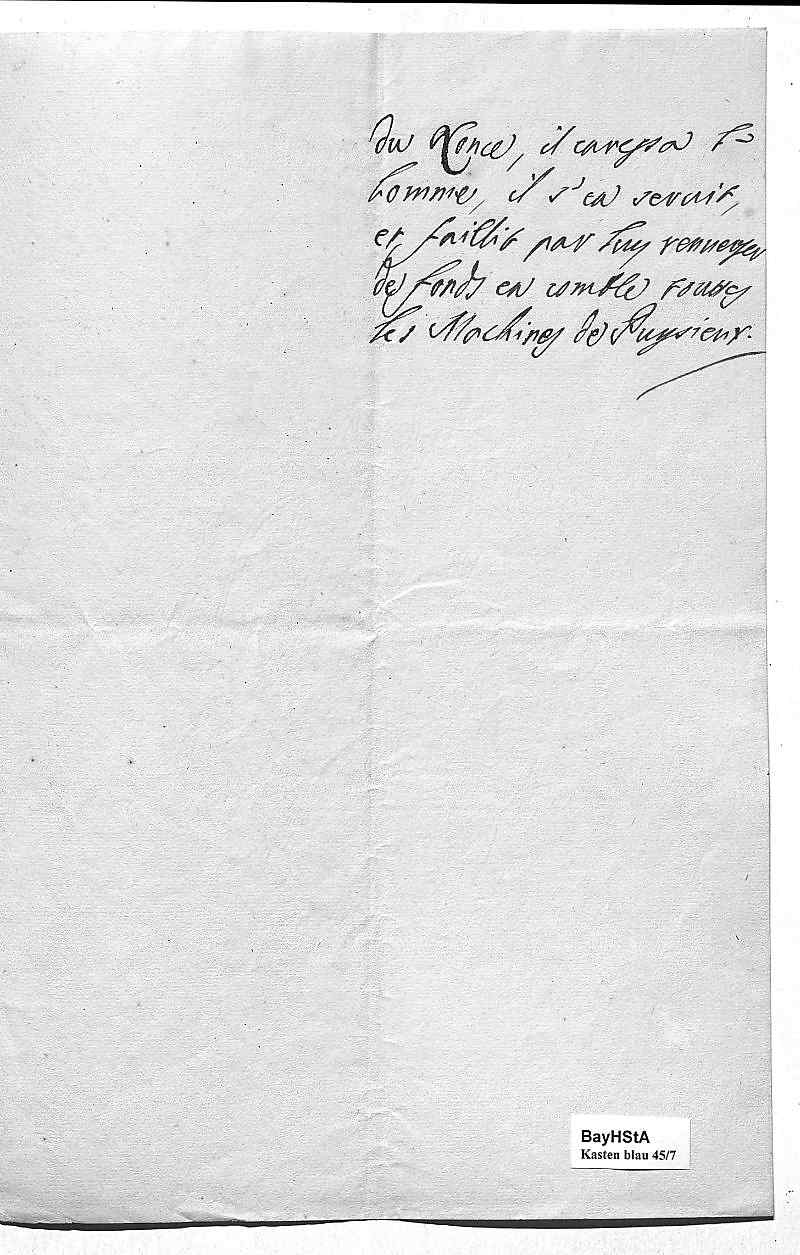 du Nonce, il caressa l'
homme, il s'en servit,
et faillit par luy renverser
de fonds en comble toutes
les Machines de Puysieux.
BayHStA
Kasten blau 45/7